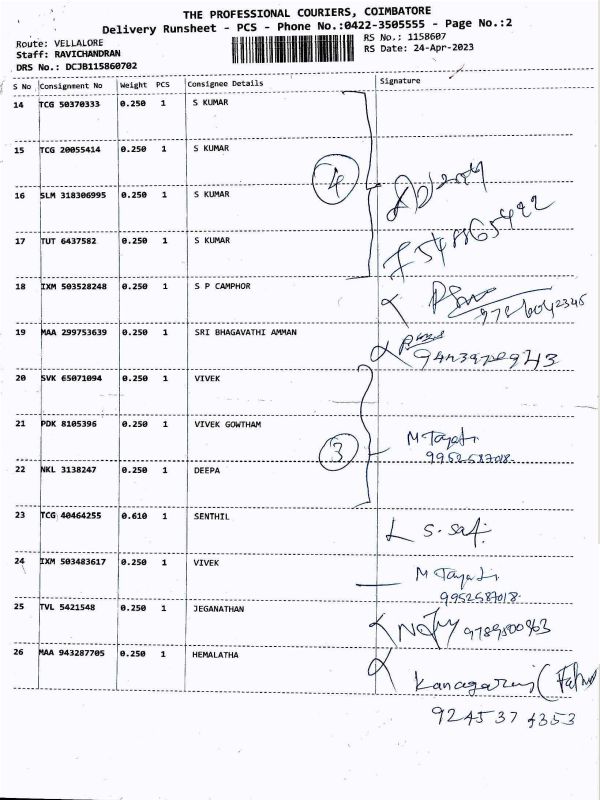 THE PROFESSIONAL COURIERS, COIMBATORE
Delivery Runsheet - PCS - Phone No.:0422-3505555 - Page No.:2
Route: VELLALORE
RS No.: 1158607
Staff: RAVICHANDRAN
RS Date: 24-Apr-2023
DRS No.: DCJB115860702
S No Consignment No Weight PCS Consignee Details Signature
14 TCG 50370333 0.250 1 S KUMAR
15 TCG 20055414 0.250 1 S KUMAR
4
16 SLM 318306995 0.250 1 S KUMAR
17 TUT 6437582 0.250 1 S KUMAR
18 IXM 503528248 0.250 1 S P CAMPHOR
19 MAA 299753639 0.250 1 SRI BHAGAVATHI AMMAN
20 SVK 65071094 0.250 1 VIVEK
21 PDK 8105396 0.250 1 VIVEK GOWTHAM
3
9952587018
22 NKL 3138247 0.250 1 DEEPA
23 TCG 40464255 0.610 1 SENTHIL
24 IXM 503483617 0.250 1 VIVEK
9952587018
25 TVL 5421548 0.250 1 JEGANATHAN
26 MAA 943287705 0.250 1 HEMALATHA
9245374353